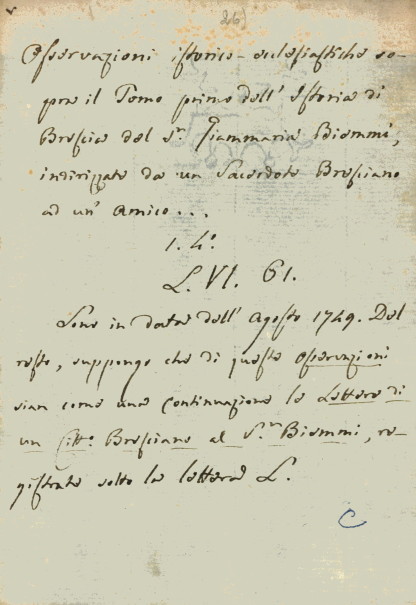 26)
Osservazioni istorico-eclesiastiche so-
pra il Tomo primo dell' Istoria di
Brescia del S.r Giammaria Biemmi,
indirizzate da un Sacerdote Bresciano
ad un' Amico...
1. 4.o
L. VI. 61.
Sono in data dell' Agosto 1749. Del
resto, suppongo che di queste Osservazioni
sian come una continuazione le Lettere di
un Citt.o Bresciano al S.r Biemmi, re-
gistrate sotto la lettera L.
C